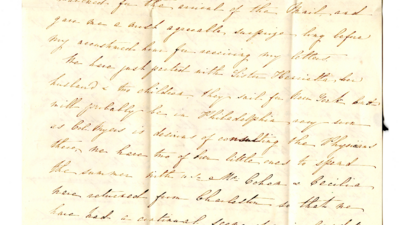 for the arrival of the Mail, and
gave me a much agreeable surprise long before
my accustomed hour for receiving my letters
We have just parted with Sister Henrietta her
husband & two children they sail for New York but
will probably be in Philadelphia very soon
as Col. Myers is desirous of consulting the Physicians
there, we have two of her little ones to spend
the summer with us. Mr Cohen & Cecilia
have returned from Charleston so that we
have had a continual